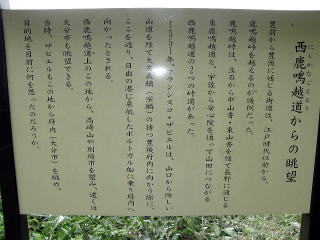 にしかなごえどう
西鹿鳴越道からの眺望
豊前から豊後に通じる街道は、江戸時代以前から、
鹿鳴越峠を越えるのが通例だった。
鹿鳴越峠は、立石から中山香・東山香を経て長野に通じる
東鹿鳴越道と、宇佐から安心院を通って山田につながる
西鹿鳴越道の2つの峠道があった。
1551年、フランシスコ・ザビエルは、山口から険しい
山道を経て大友義鎮(宗麟)の待つ豊後府内に向かう際に、
ここを通り、日出の港に来航したポルトガル船に乗り府内へ
向かったとされる。
西鹿鳴越道上のこの地から、高崎山や別府湾を望み、遠くは
大分市も眺できる。
当時、ザビエルもこの地から府内(大分市)を眺め、
目的地を目前に何を思ったのだろうか。